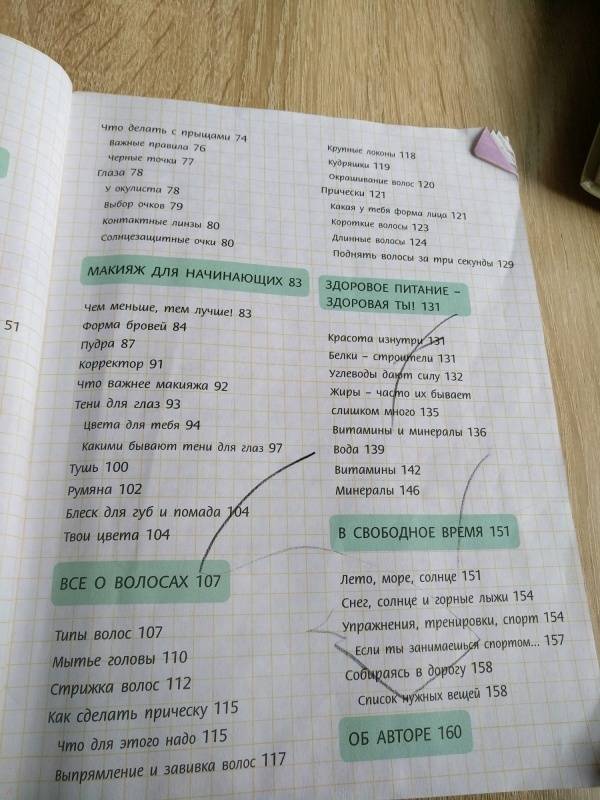 51
Что делать с прыщами 74
Важные правила 76
Черные точки 77
Глаза 78
У окулиста 78
Выбор очков 79
Контактные линзы 80
Солнцезащитные очки 80
МАКИЯЖ ДЛЯ НАЧИНАЮЩИХ 83
Чем меньше, тем лучше! 83
Форма бровей 84
Пудра 87
Корректор 91
Что важнее макияжа 92
Тени для глаз 93
Цвета для тебя 94
Какими бывают тени для глаз 97
Тушь 100
Румяна 102
Блеск для губ и помада 104
Твои цвета 104
ВСЕ О ВОЛОСАХ 107
Типы волос 107
Мытье головы 110
Стрижка волос 112
Как сделать прическу 115
Что для этого надо 115
Выпрямление и завивка волос 117
Крупные локоны 118
Кудряшки 119
Окрашивание волос 120
Прически 121
Какая у тебя форма лица 121
Короткие волосы 123
Длинные волосы 124
Поднять волосы за три секунды 129
ЗДОРОВОЕ ПИТАНИЕ –
ЗДОРОВАЯ ТЫ! 131
Красота изнутри 131
Белки – строители 131
Углеводы дают силу 132
Жиры – часто их бывает
слишком много 135
Витамины и минералы 136
Вода 139
Витамины 142
Минералы 146
В СВОБОДНОЕ ВРЕМЯ 151
Лето, море, солнце 151
Снег, солнце и горные лыжи 154
Упражнения, тренировки, спорт 154
Если ты занимаешься спортом... 157
Собираясь в дорогу 158
Список нужных вещей 158
ОБ АВТОРЕ 160